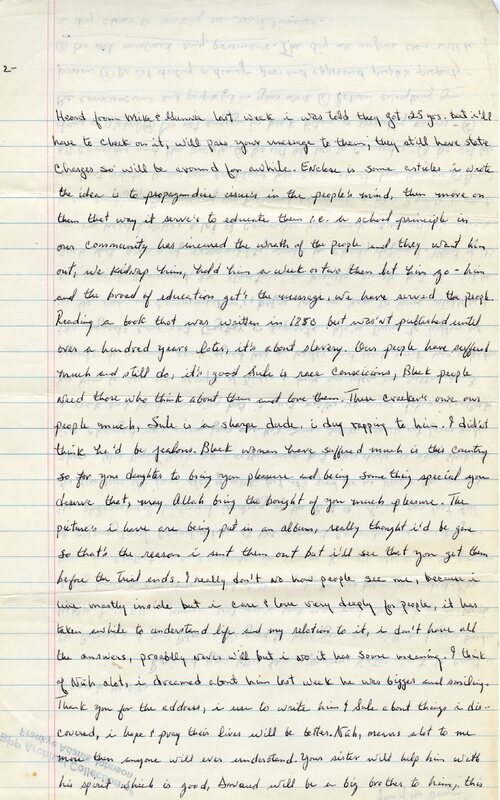 2-
Heard from Mike & last week i was told they got 25 yrs. but i'll
have to check on it, will pass your message to them, they still have state
charges so will be around for awhile. Enclose is some articles i wrote
the idea is to propagandise issues in the people's mind, then move on
them that way it serve's to educate them i.e. a school principle in
our community has incured the wrath of the people and they want him
out, we kidnap him, hold him a week or two then let him go - him
and the broad of education get's the message, we have served the people.
Reading a book that was written in 1850 but was'nt published until
over a hundred years later, it's about slavery. Our people have suffered
much and still do, it's good Sule is race conscicious, Black people
need those who think about them and love them. These cracker's owe our
people much, Sule is a sharpe dude. i dug rapping to him. I did'nt
think he'd be jealous. Black women have suffered much is this country
so for your daughter to bring you pleasure and being something special you
deserve that, may Allah bring the bought of you much pleasure. The
picture's i have are being put in an album, really thought i'd be gone
so that's the reason i sent them out but i'll see that you get them
before the trial ends. I really don't no how people see me, because i
live mostly inside but i care & love very deeply for people, it has
taken awhile to understand life and my relation to it, i don't have all
the answers, proably never will but i no it has some meaning. I think
of Noah alot, i dreamed about him last week he was bigger and smiling.
Thank you for the address, i use to write him & Sule about things i dis-
covered, i hope & pray their lives will be better. Noah, means alot to me
more then anyone will ever understand. Your sister will help him with
his which is good, will be a big brother to him, this
BPP Archival Collection of
Frankye Adams Johnson